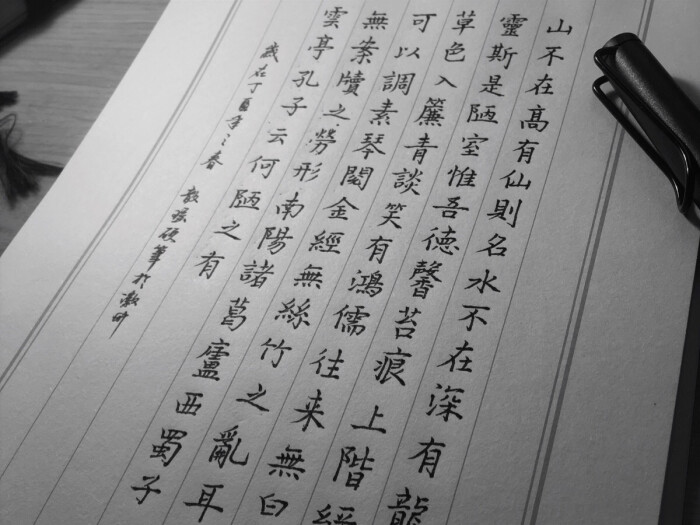 山不在高有仙則名水不在深有龍
靈斯是陋室惟吾德馨苔痕上階
草色入簾青談笑有鴻儒往来無白
可以調素琴閱金經無絲竹之亂耳
無案牘之勞形南陽諸葛廬西蜀子
雲亭孔子云何陋之有
歲在丁酉年之春 硬筆於